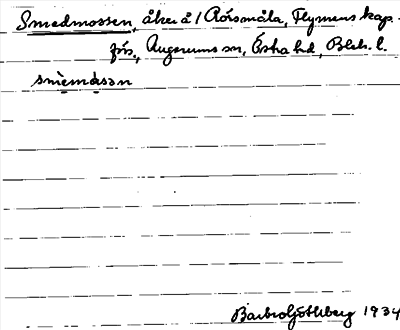 Smedmossen, åker å 1 Rörsmåla, Flymens kap-
förs., Augerums sn, Östra hd, Blek. l.
smèmåsən
Barbro Göthberg 1934